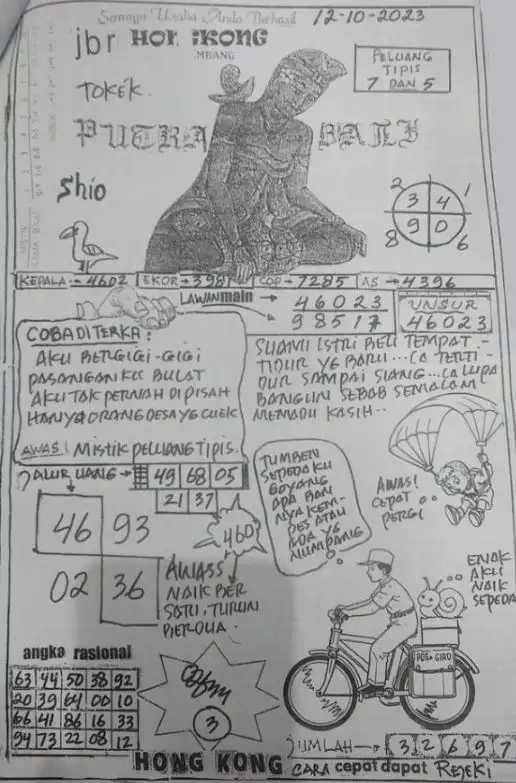 Semoga Usaha Anda Berhasil
12-10-2023
jbr HONGKONG
MBANG
PELUANG
TIPIS
7 DAN 5
TOKEK.
PUTRA BALI
Shio
2 1
3 4
9 0
8 6
KEPALA → 4602 EKOR → 3981 COP → 7285 AS → 4396
LAWAN main → 46023
98517
UNSUR
46023
COBA DITERKA:
AKU BERGIGI-GIGI
PASANGANKU BULAT
AKU TAK PERNAH DIPISAH
HANYA ORANG DESA YG CUEK
AWAS! MISTIK PELUANG TIPIS.
SUAMI ISTRI BELI TEMPAT
TIDUR YG BARU... CA TERTI-
DUR SAMPAI SIANG... CA LUPA
BANGUN SEBAB SEMALAM
MEMADU KASIH..
JALUR UANG → 49 68 05
21 37
46 93
02 36
460
AWASS
NAIK BER
SATU, TURUN
BERDUA.
TUMBEN
SEPEDAKU
GOYANG
ADA BAN
NYA KEM-
PES ATAU
ADA YG
NUMPANG
AWAS!
CEPAT
PERGI
ENAK
AKU
NAIK
SEPEDA
POS & GIRO
angka rasional
63 44 50 38 92
20 39 64 00 10
66 41 86 16 33
94 73 22 08 12
3
JUMLAH → 3 2 6 9 7
HONG KONG CARA cepat dapat REJEKI